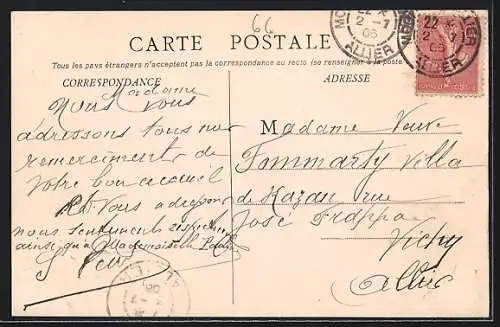 66
CARTE POSTALE
Tous les pays étrangers n'acceptent pas la correspondance au recto (se renseigner à la poste)
CORRESPONDANCE
ADRESSE
Madame
Nous vous
adressons tous nos
remerciments de
votre bon accueil
Vous
nous sentiments respect
ainsi qu'a Mademoiselle
Madame Veuve
Tommarty Villa
de Kazan rue
José Frappa
Vichy
Allier
22
2 - 7
06
ALLIER
22
2 - 7
06
ALLIER